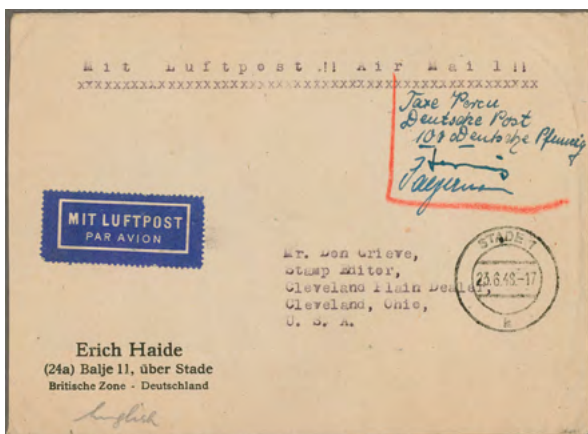 Mit Luftpost!! Air Mail!!
xxxxxxxxxxxxxxxxxxxxxxxxxxxxxxxxxxxxxxxxxxxxx
Taxe Percu
Deutsche Post
100 Deutsche Pfennig
MIT LUFTPOST
PAR AVION
STADE 1
23.6.48.-17
k
Mr. Don Grieve,
Stamp Editor,
Cleveland Plain Dealer,
Cleveland, Ohio,
U. S. A.
Erich Haide
(24a) Balje 11, über Stade
Britische Zone - Deutschland
English